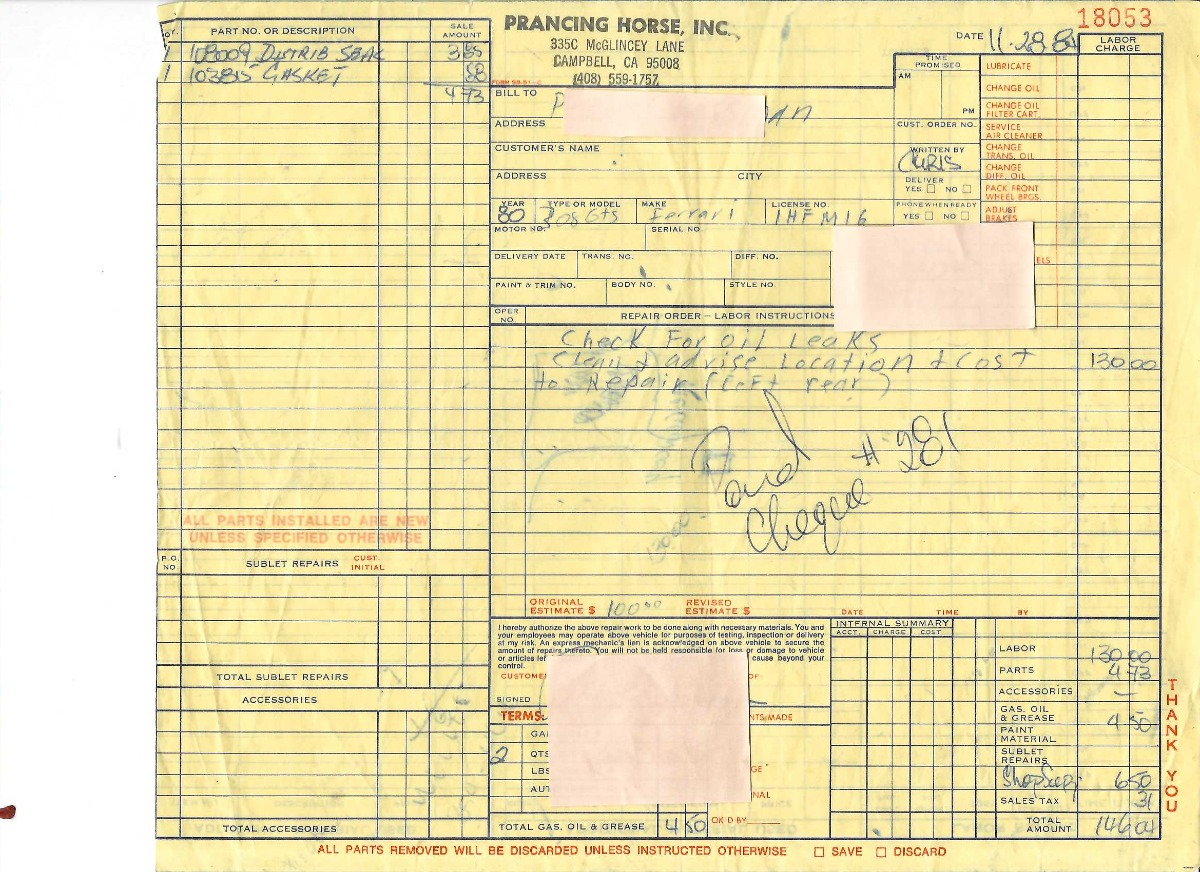 18053
PRANCING HORSE, INC.
335C McGLINCEY LANE
CAMPBELL, CA 95008
(408) 559-1757
DATE 11-28-84
PART NO. OR DESCRIPTION
SALE AMOUNT
1 108009 DISTRIB SEAL 3 85
1 103815 GASKET 88
4 73
BILL TO
ADDRESS
CUSTOMER'S NAME
ADDRESS CITY
YEAR 80
TYPE OR MODEL 308 Gts
MAKE Ferrari
LICENSE NO. 1HFM16
MOTOR NO. SERIAL NO.
DELIVERY DATE TRANS. NO. DIFF. NO.
PAINT & TRIM NO. BODY NO. STYLE NO.
TIME PROMISED
AM
PM
CUST. ORDER NO.
WRITTEN BY
CHRIS
DELIVER
YES NO
PHONE WHEN READY
YES NO
LABOR CHARGE
LUBRICATE
CHANGE OIL
CHANGE OIL FILTER CART.
SERVICE AIR CLEANER
CHANGE TRANS. OIL
CHANGE DIFF. OIL
PACK FRONT WHEEL BRGS.
ADJUST BRAKES
OPER. NO.
REPAIR ORDER – LABOR INSTRUCTIONS
Check For oil Leaks
Clean & advise Location & Cost 130 00
to Repair (Left rear)
Paid
Cheque # 281
ALL PARTS INSTALLED ARE NEW
UNLESS SPECIFIED OTHERWISE
P.O. NO.
SUBLET REPAIRS
CUST. INITIAL
TOTAL SUBLET REPAIRS
ACCESSORIES
TOTAL ACCESSORIES
ORIGINAL ESTIMATE $ 100 00
REVISED ESTIMATE $
DATE TIME BY
I hereby authorize the above repair work to be done along with necessary materials. You and
your employees may operate above vehicle for purposes of testing, inspection or delivery
at my risk. An express mechanic's lien is acknowledged on above vehicle to secure the
amount of repairs thereto. You will not be held responsible for loss or damage to vehicle
or articles
cause beyond your
control.
SIGNED
TERMS:
2 QTS
LBS
TOTAL GAS, OIL & GREASE 4 50
OK'D BY
INTERNAL SUMMARY
ACCT. CHARGE COST
LABOR 130 00
PARTS 4 73
ACCESSORIES —
GAS, OIL & GREASE 4 50
PAINT MATERIAL
SUBLET REPAIRS
6 50
SALES TAX 31
TOTAL AMOUNT 146 04
THANK YOU
ALL PARTS REMOVED WILL BE DISCARDED UNLESS INSTRUCTED OTHERWISE SAVE DISCARD